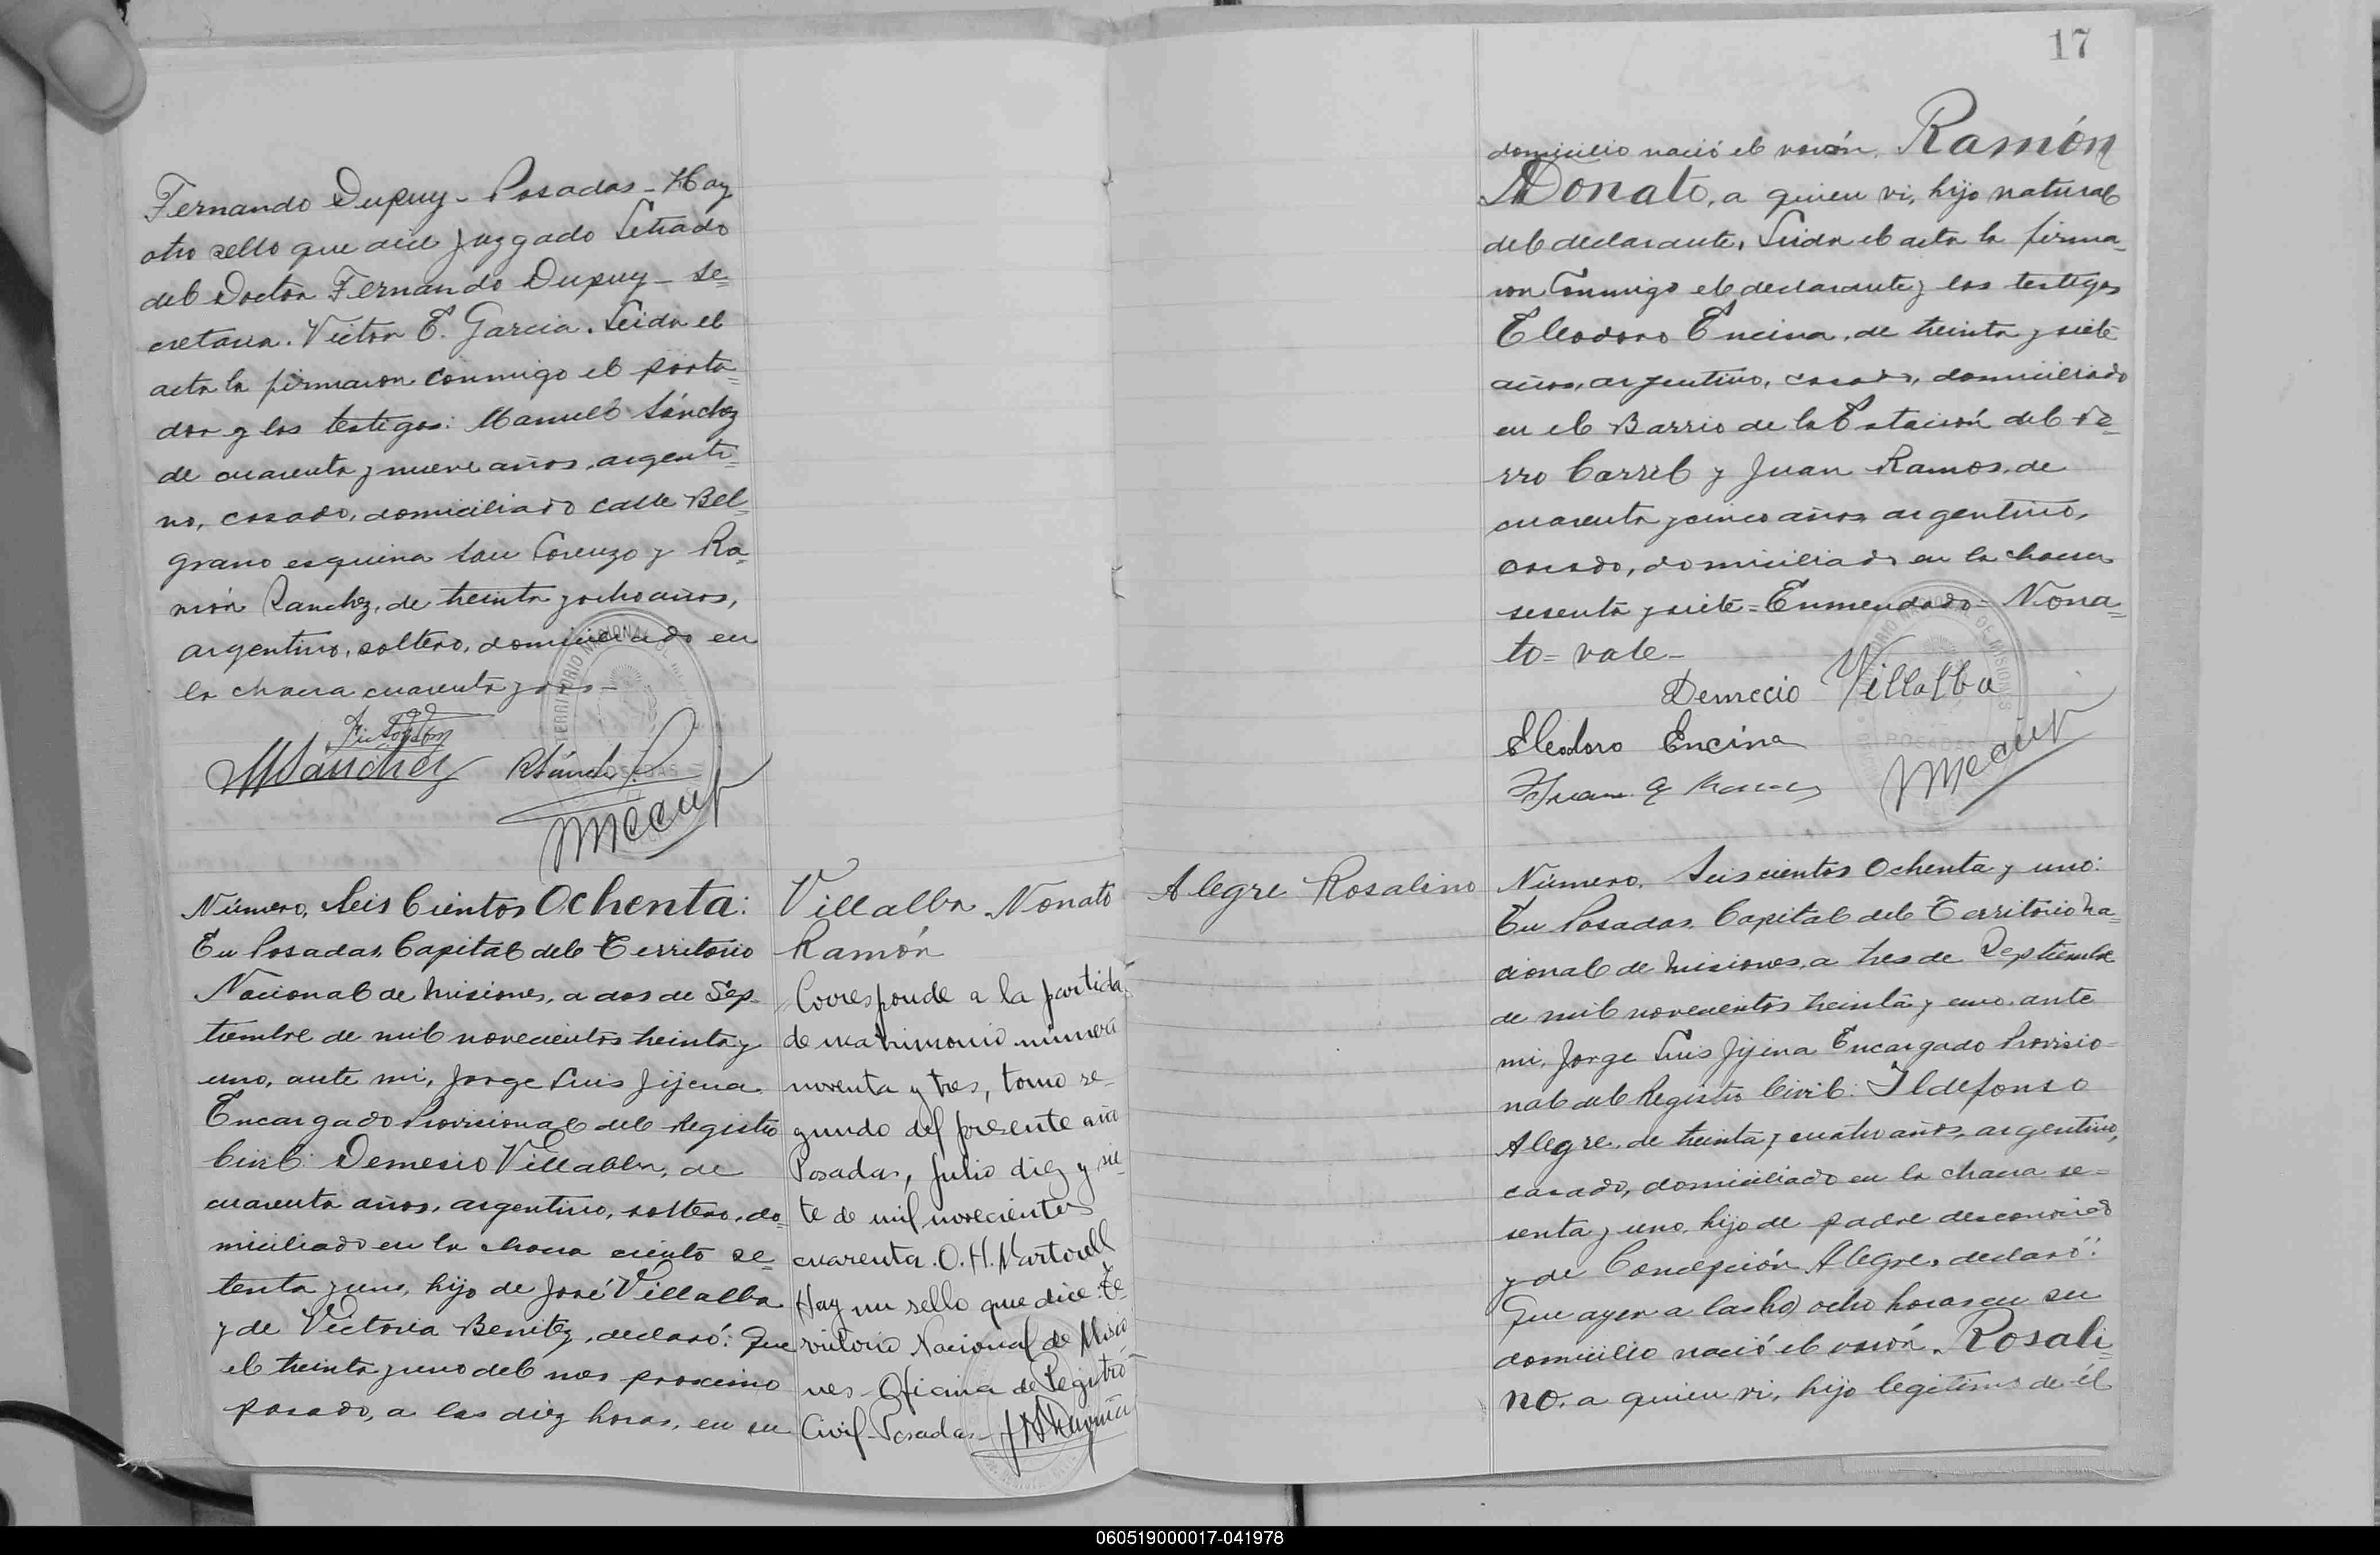 Fernando Dupuy - Posadas - Hay
otro sello que dice Juzgado Letrado
del Doctor Fernando Dupuy - Se=
cretaria. Victor E. Garcia. Leida el
acta la firmaron conmigo el porta=
dor y los testigos: Manuel Sánchez
de cuarenta y nueve años, argenti=
no, casado, domiciliado calle Bel=
grano esquina San Lorenzo y Ra=
món Sanchez, de treinta y ocho años,
argentino, soltero, domiciliado en
la chacra cuarenta y dos -
MSánchez RSánch
Número, Seis Cientos Ochenta:
En Posadas, Capital del Territorio
Nacional de Misiones, a dos de Sep-
tiembre de mil novecientos treinta y
uno, ante mi, Jorge Luis Jijena
Encargado Provisional del Registro
Civil: Demesio Villalba, de
cuarenta años, argentino, soltero, do=
miciliado en la chacra ciento se=
tenta y uno, hijo de José Villalba
y de Victoria Benitez, declaró: Que
el treinta y uno del mes proximo
pasado, a las diez horas, en su
Villalba Nonato
Ramón
Corresponde a la partida
de matrimonio número
noventa y tres, tomo se-
gundo del presente año
Posadas, Julio diez y sie-
te de mil novecientos
cuarenta. O. H. Martorell
Hay un sello que dice: Te-
rritorio Nacional de Misio
nes - Oficina de Registro
Civil - Posadas -
17
domicilio nació el varón, Ramón
Nonato, a quien vi, hijo natural
del declarante, Leida el acta la firma=
ron conmigo el declarante y los testigos
Eleodoro Encina, de treinta y siete
años, argentino, casado, domiciliado
en el Barrio de la Estación del Fe=
rro Carril y Juan Ramos, de
cuarenta y cinco años, argentino,
casado, domiciliado en la chacra
sesenta y siete = Enmendado = Nona=
to = vale -
TERRITORIO NACIONAL DE MISIONES
POSADAS
Demecio Villalba
Eleodoro Encina
Alegre Rosalino
Número, Seiscientos Ochenta y uno:
En Posadas, Capital del Territorio Na=
cional de Misiones, a tres de Septiembre
de mil novecientos treinta y uno, ante
mi, Jorge Luis Jijena Encargado Provisio=
nal del Registro Civil: Ildefonso
Alegre, de treinta y cuatro años, argentino,
casado, domiciliado en la chacra se=
senta y uno, hijo de padre desconocido
y de Concepción Alegre, declaró:
Que ayer a las (ho) ocho horas en su
domicilio nació el varón, Rosali=
no, a quien vi, hijo legitimo de él
060519000017-041978